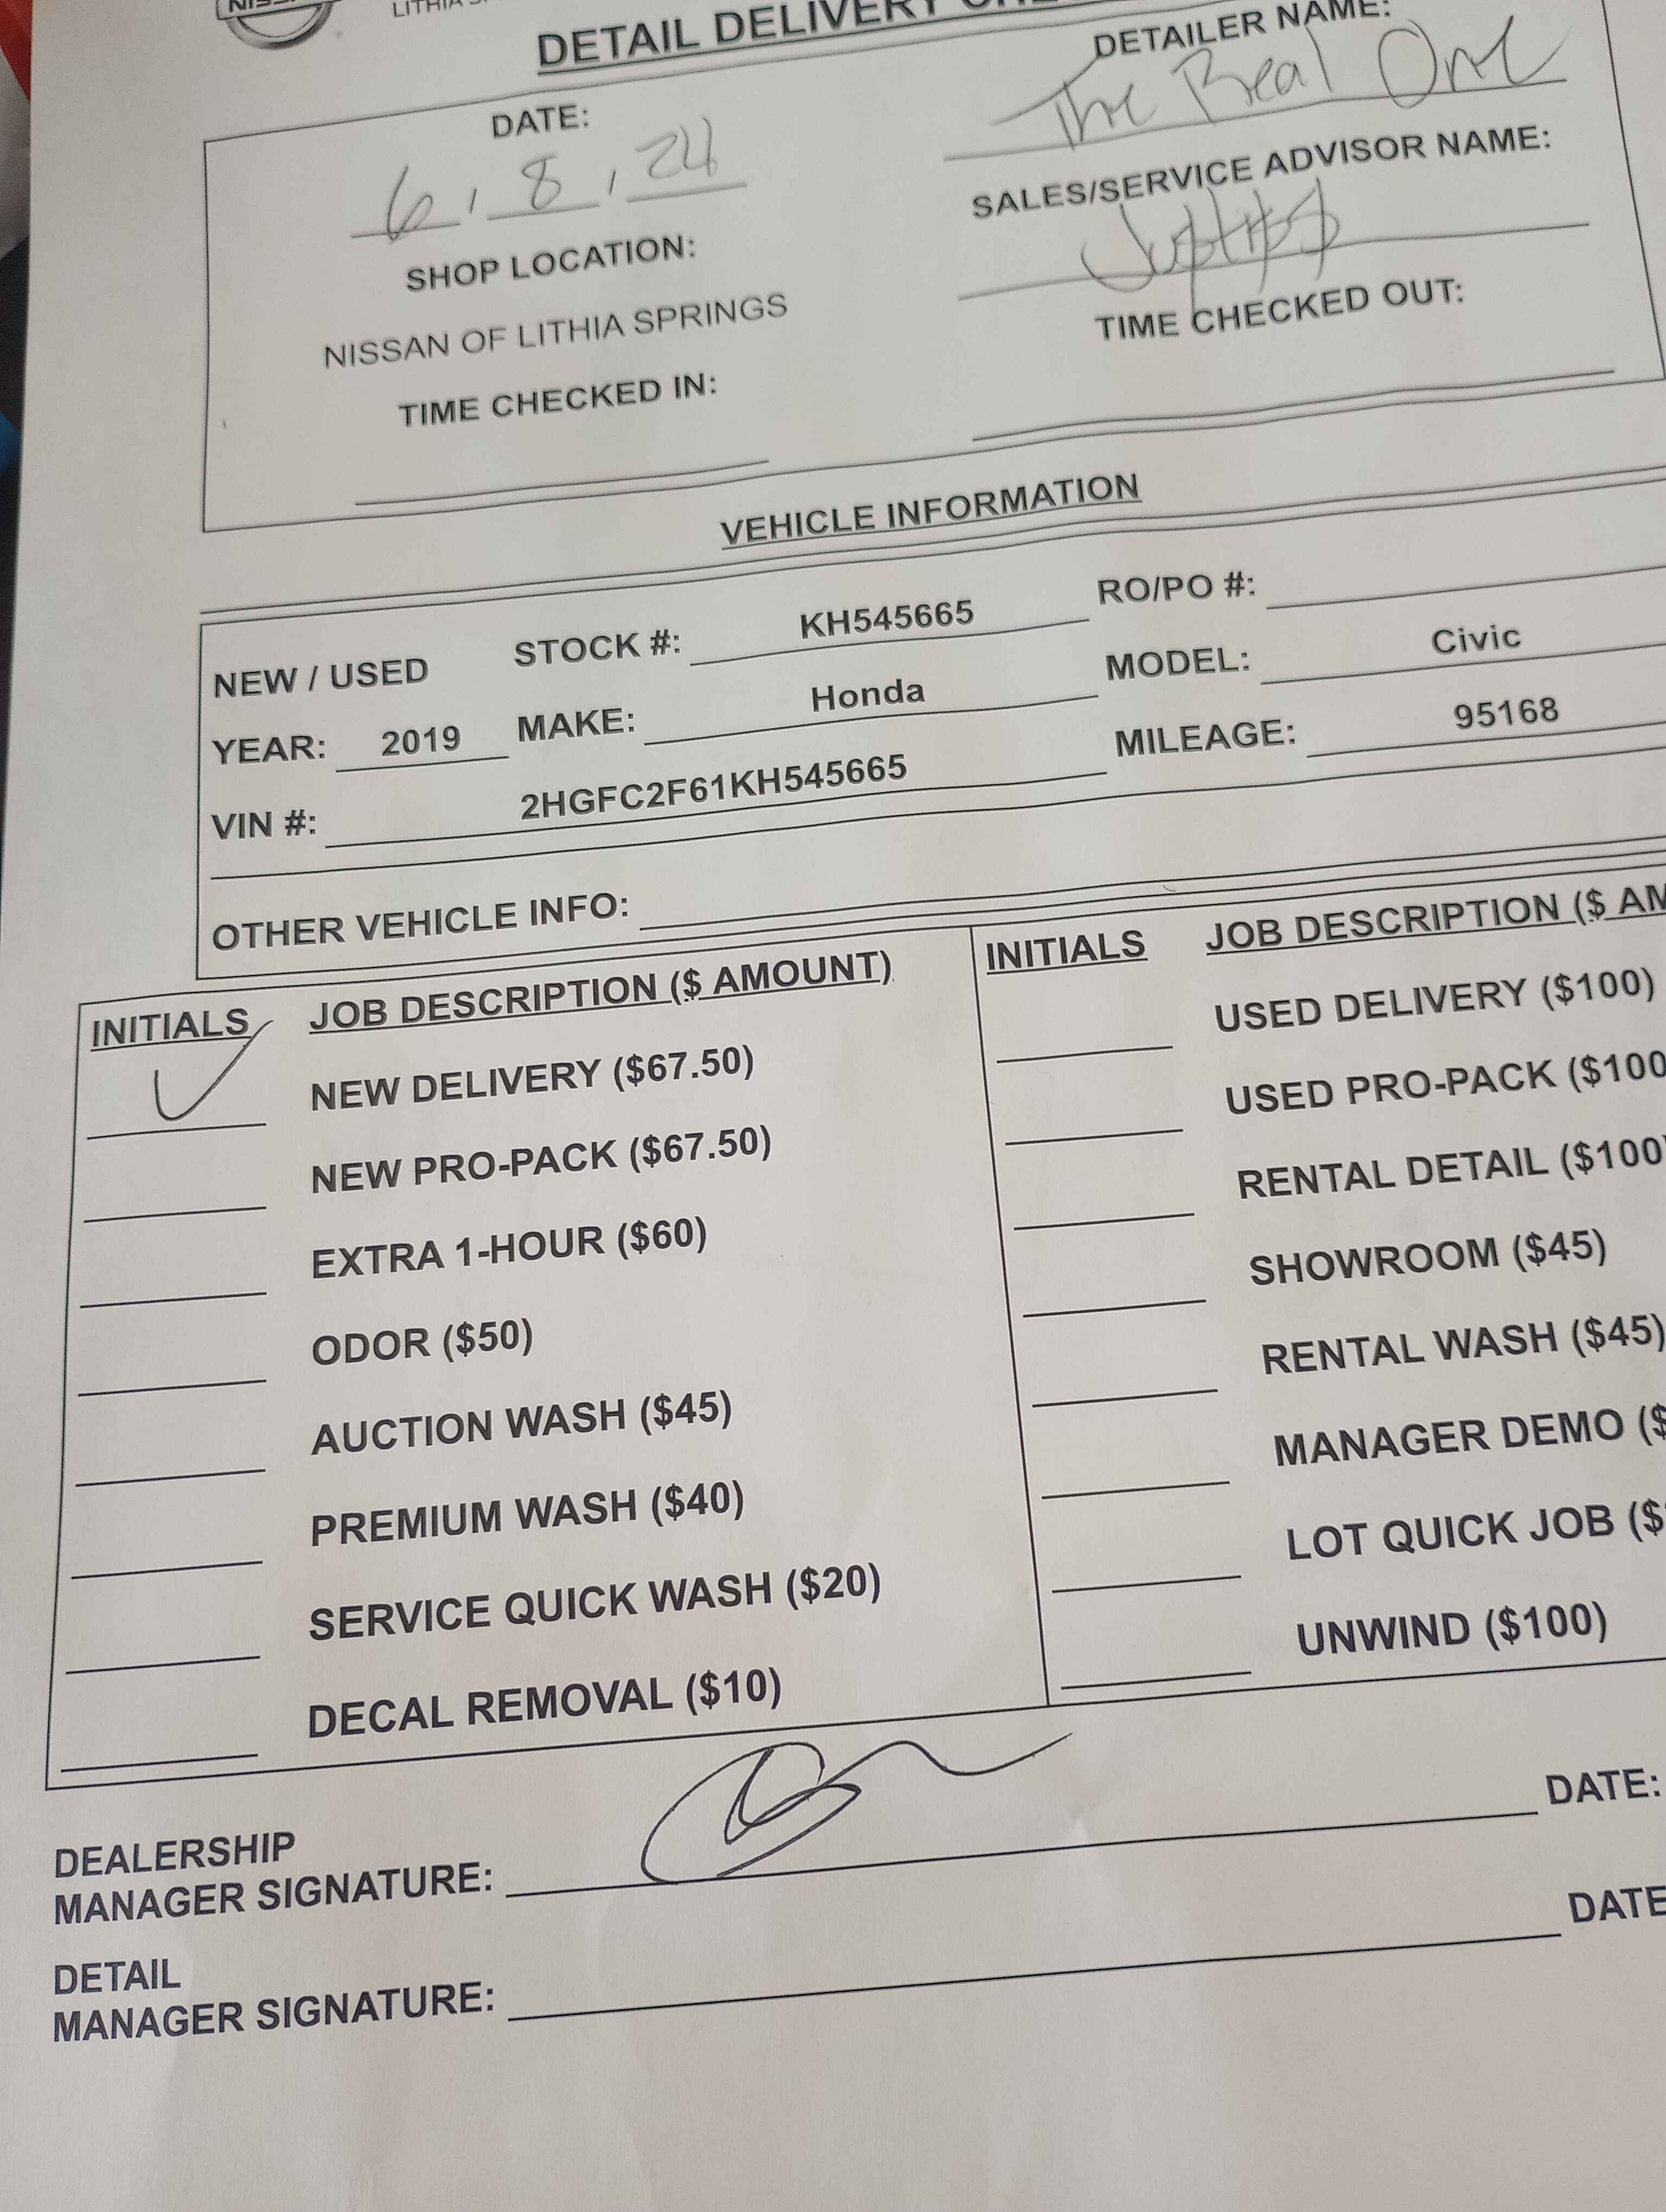 NISS
LITHIA
DETAIL DELIVERY
DATE:
6, 8, 24
DETAILER NAME:
The Real One
SHOP LOCATION:
NISSAN OF LITHIA SPRINGS
SALES/SERVICE ADVISOR NAME:
TIME CHECKED IN:
TIME CHECKED OUT:
VEHICLE INFORMATION
NEW / USED STOCK #: KH545665 RO/PO #:
YEAR: 2019 MAKE: Honda MODEL: Civic
VIN #: 2HGFC2F61KH545665 MILEAGE: 95168
OTHER VEHICLE INFO:
INITIALS JOB DESCRIPTION ($ AMOUNT)
NEW DELIVERY ($67.50)
NEW PRO-PACK ($67.50)
EXTRA 1-HOUR ($60)
ODOR ($50)
AUCTION WASH ($45)
PREMIUM WASH ($40)
SERVICE QUICK WASH ($20)
DECAL REMOVAL ($10)
INITIALS JOB DESCRIPTION ($ AM
USED DELIVERY ($100)
USED PRO-PACK ($100
RENTAL DETAIL ($100)
SHOWROOM ($45)
RENTAL WASH ($45)
MANAGER DEMO ($
LOT QUICK JOB ($
UNWIND ($100)
DEALERSHIP
MANAGER SIGNATURE: DATE:
DETAIL
MANAGER SIGNATURE: DATE